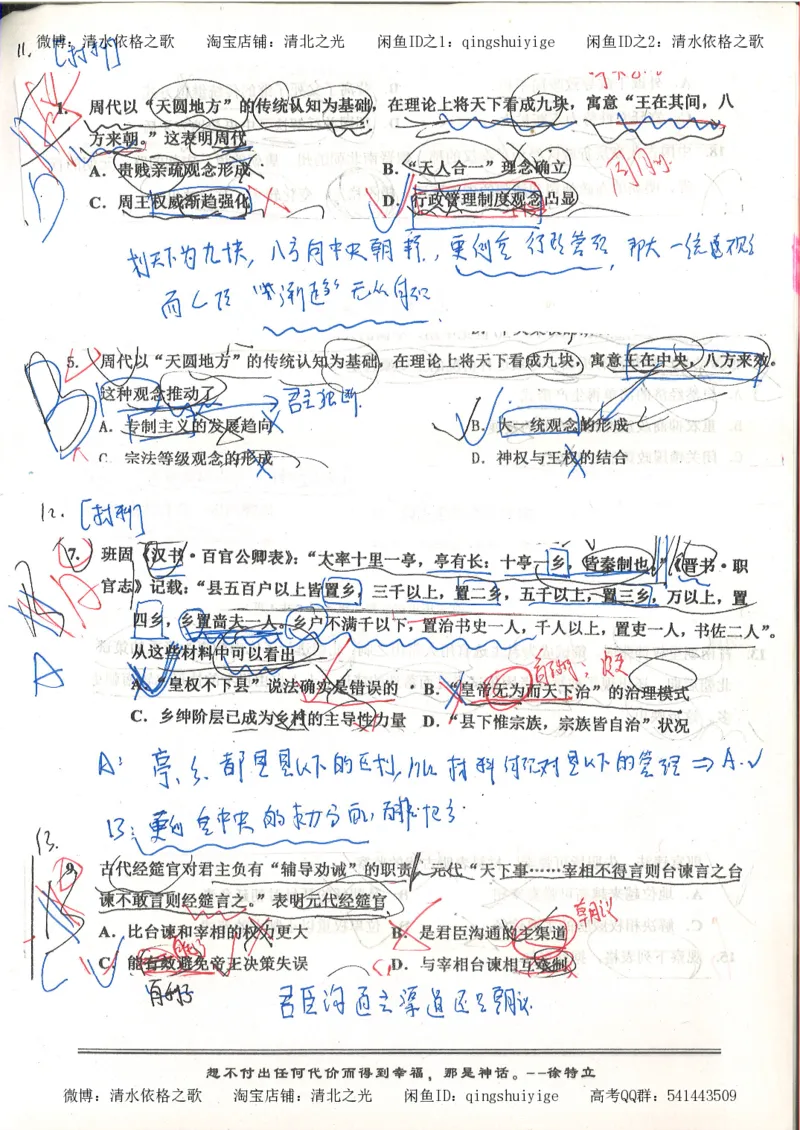 微博：清水依格之歌 淘宝店铺：清北之光 闲鱼ID之1：qingshuiyige 闲鱼ID之2：清水依格之歌
11. [材料]
1. 周代以“天圆地方”的传统认知为基础，在理论上将天下看成九块，寓意“王在其间，八
方来朝。”这表明周代
A．贵贱亲疏观念形成 B．“天人合一”理念确立
C．周王权威渐趋强化 D．行政管理制度观念凸显
D
划天下为九块，八方向中央朝拜，更倾向行政管理，即大一统
而C项“渐趋”无从得知
5. 周代以“天圆地方”的传统认知为基础，在理论上将天下看成九块，寓意王在中央，八方来效。
这种观念推动了
君主独断
A．专制主义的发展趋向 B．大一统观念的形成
C．宗法等级观念的形成 D．神权与王权的结合
B
12. [材料]
7. 班固《汉书·百官公卿表》：“大率十里一亭，亭有长；十亭一乡，皆秦制也。”《晋书·职
官志》记载：“县五百户以上皆置乡，三千以上，置二乡，五千以上，置三乡，万以上，置
四乡，乡置啬夫一人。乡户不满千以下，置治书史一人，千人以上，置吏一人，书佐二人”。
从这些材料中可以看出
A．“皇权不下县”说法确实是错误的 B．“皇帝无为而天下治”的治理模式
C．乡绅阶层已成为乡村的主导性力量 D．“县下惟宗族，宗族皆自治”状况
A
A：亭、乡都是县以下的区划，所以材料体现对县以下的管理⇒A.✓
13.
9. 古代经筵官对君主负有“辅导劝诫”的职责，元代“天下事……宰相不得言则台谏言之台
谏不敢言则经筵言之。”表明元代经筵官
朝议
A．比台谏和宰相的权力更大 B．是君臣沟通的主渠道
C．能有效避免帝王决策失误 D．与宰相台谏相互牵制
C
君臣沟通主渠道还是朝议
想不付出任何代价而得到幸福，那是神话。--徐特立
微博：清水依格之歌 淘宝店铺：清北之光 闲鱼ID：qingshuiyige 高考QQ群：541443509